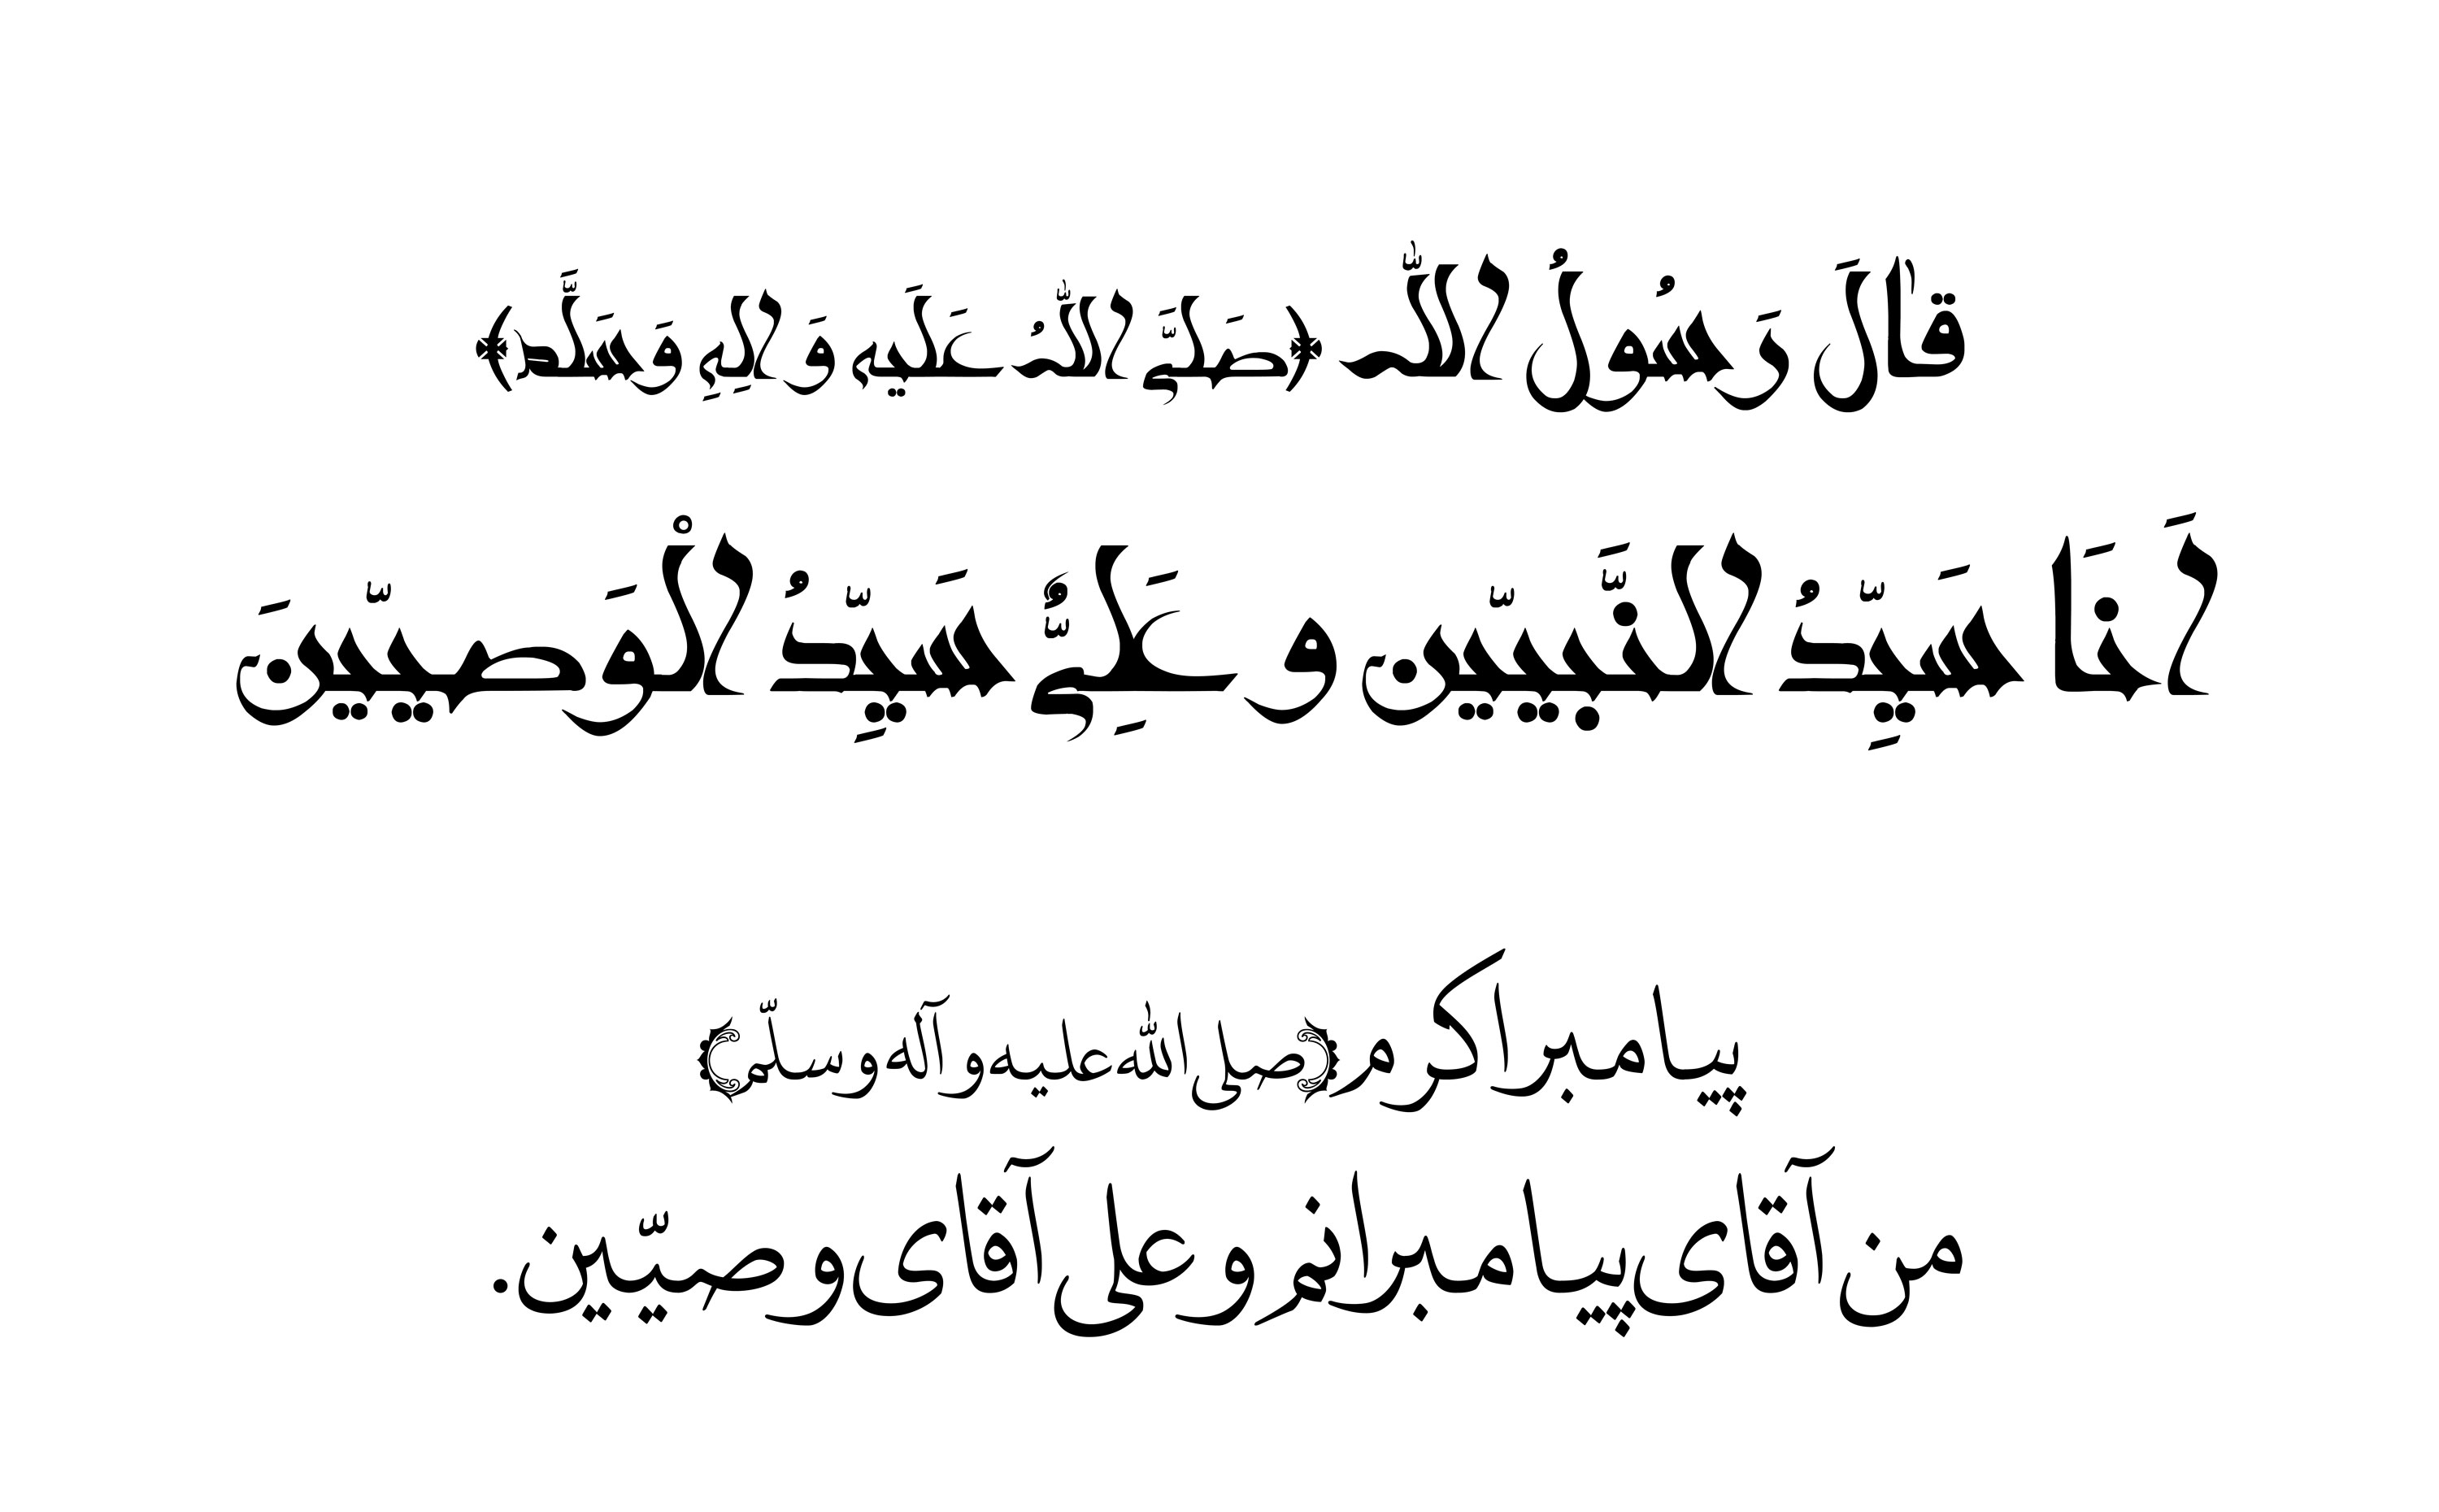 قٰالَ رَسُولُ اللّٰه (صَلَّی اللّٰهُ عَلَیه وَ الِهِ وَسَلَّم)
اَنَا سَیِّدُ النَّبیّین و عَلِیٌّ سَیِّدُ الْوَصیّینَ
پیامبر اکرم (صلی اللّٰه علیه و آله و سلّم)
من آقای پیامبرانم و علی آقای وصیّین.